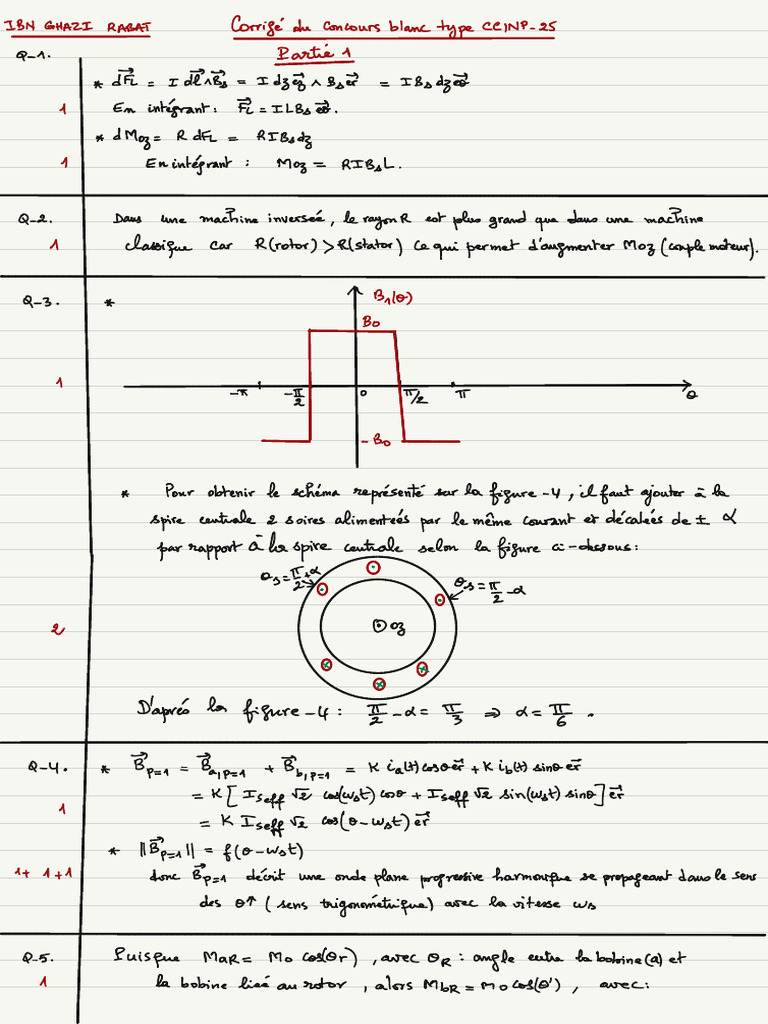 IBN GHAZI RABAT Corrigé du concours blanc type CCINP-25
Partie 1
Q-1.
* dF⃗L = I dl⃗ ∧ B⃗s = I dz e⃗z ∧ Bs e⃗r = I Bs dz e⃗θ
1 En intégrant : F⃗L = I L Bs e⃗θ.
* dMoz = R dFL = R I Bs dz
1 En intégrant : Moz = R I Bs L.
Q-2. Dans une machine inversée, le rayon R est plus grand que dans une machine
1 classique car R(rotor) > R(stator) ce qui permet d'augmenter Moz (couple moteur).
Q-3. *
B1(θ)
B0
1
-π -π/2 0 π/2 π θ
-B0
* Pour obtenir le schéma représenté sur la figure-4, il faut ajouter à la
spire centrale 2 soires alimenteés par le même courant et décaleés de ± α
par rapport à la spire centrale selon la figure ci-dessous :
θs = π/2 + α θs = π/2 - α
2 oz
D'après la figure-4 : π/2 - α = π/3 ⇒ α = π/6 .
Q-4. * B⃗p=1 = B⃗a,p=1 + B⃗b,p=1 = K ia(t) cosθ e⃗r + K ib(t) sinθ e⃗r
1 = K [ Iseff √2 cos(ωst) cosθ + Iseff √2 sin(ωst) sinθ ] e⃗r
= K Iseff √2 cos(θ - ωst) e⃗r
* ||B⃗p=1|| = f(θ - ωst)
1+ 1+1 donc B⃗p=1 décrit une onde plane progressive harmonique se propageant dans le sens
des θ↑ ( sens trigonométrique) avec la vitesse ωs
Q-5. Puisque MaR = Mo cos(θr) , avec θR : angle entre la bobine (a) et
1 la bobine lieé au rotor , alors MbR = Mo cos(θ') , avec :